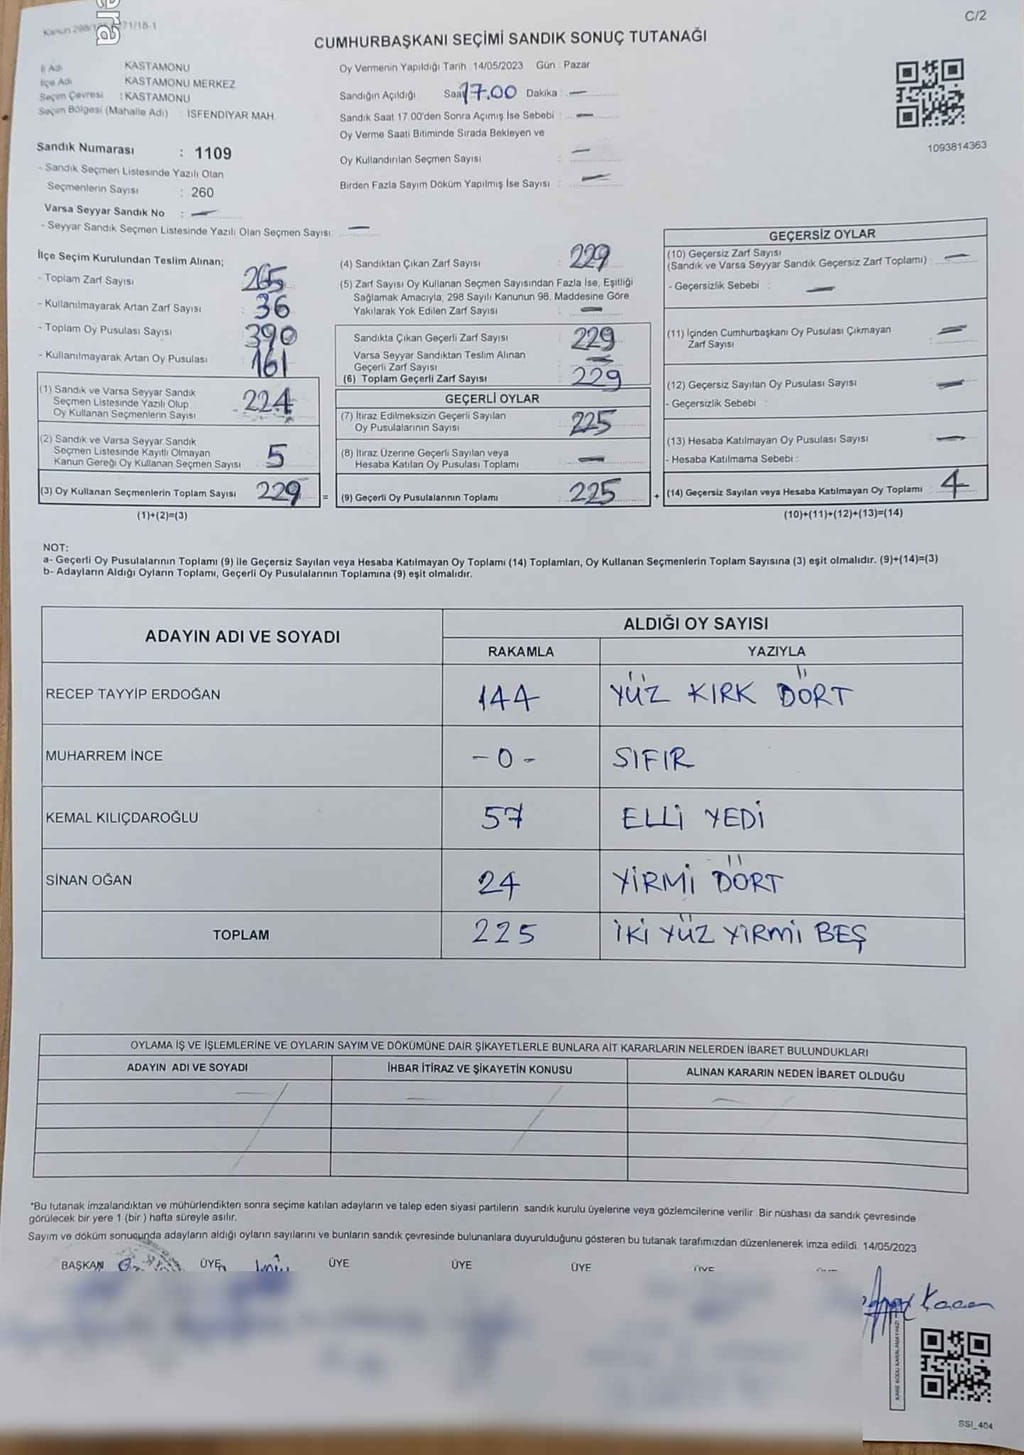 C/2
CUMHURBAŞKANI SEÇİMİ SANDIK SONUÇ TUTANAĞI
İl Adı KASTAMONU
İlçe Adı KASTAMONU MERKEZ
Seçim Çevresi : KASTAMONU
Seçim Bölgesi (Mahalle Adı) : İSFENDİYAR MAH.
Oy Vermenin Yapıldığı Tarih : 14/05/2023 Gün : Pazar
Sandığın Açıldığı Saat 17.00 Dakika : —
Sandık Saat 17.00'den Sonra Açımış İse Sebebi : —
Oy Verme Saati Bitiminde Sırada Bekleyen ve
Oy Kullandırılan Seçmen Sayısı : —
Birden Fazla Sayım Döküm Yapılmış İse Sayısı : —
1093814363
Sandık Numarası : 1109
- Sandık Seçmen Listesinde Yazılı Olan
Seçmenlerin Sayısı : 260
Varsa Seyyar Sandık No : —
- Seyyar Sandık Seçmen Listesinde Yazılı Olan Seçmen Sayısı: —
İlçe Seçim Kurulundan Teslim Alınan;
- Toplam Zarf Sayısı : 265
- Kullanılmayarak Artan Zarf Sayısı : 36
- Toplam Oy Pusulası Sayısı : 390
- Kullanılmayarak Artan Oy Pusulası : 161
(1) Sandık ve Varsa Seyyar Sandık
Seçmen Listesinde Yazılı Olup
Oy Kullanan Seçmenlerin Sayısı : 224
(2) Sandık ve Varsa Seyyar Sandık
Seçmen Listesinde Kayıtlı Olmayan
Kanun Gereği Oy Kullanan Seçmen Sayısı : 5
(3) Oy Kullanan Seçmenlerin Toplam Sayısı : 229
(1)+(2)=(3)
(4) Sandıktan Çıkan Zarf Sayısı : 229
(5) Zarf Sayısı Oy Kullanan Seçmen Sayısından Fazla İse, Eşitliği
Sağlamak Amacıyla, 298 Sayılı Kanunun 98. Maddesine Göre
Yakılarak Yok Edilen Zarf Sayısı : —
Sandıkta Çıkan Geçerli Zarf Sayısı : 229
Varsa Seyyar Sandıktan Teslim Alınan
Geçerli Zarf Sayısı : —
(6) Toplam Geçerli Zarf Sayısı : 229
GEÇERLİ OYLAR
(7) İtiraz Edilmeksizin Geçerli Sayılan
Oy Pusulalarının Sayısı : 225
(8) İtiraz Üzerine Geçerli Sayılan veya
Hesaba Katılan Oy Pusulası Toplamı : —
= (9) Geçerli Oy Pusulalarının Toplamı : 225
GEÇERSİZ OYLAR
(10) Geçersiz Zarf Sayısı
(Sandık ve Varsa Seyyar Sandık Geçersiz Zarf Toplamı) : —
- Geçersizlik Sebebi : —
(11) İçinden Cumhurbaşkanı Oy Pusulası Çıkmayan
Zarf Sayısı : —
(12) Geçersiz Sayılan Oy Pusulası Sayısı : —
- Geçersizlik Sebebi :
(13) Hesaba Katılmayan Oy Pusulası Sayısı : —
- Hesaba Katılmama Sebebi :
+ (14) Geçersiz Sayılan veya Hesaba Katılmayan Oy Toplamı : 4
(10)+(11)+(12)+(13)=(14)
NOT:
a- Geçerli Oy Pusulalarının Toplamı (9) ile Geçersiz Sayılan veya Hesaba Katılmayan Oy Toplamı (14) Toplamları, Oy Kullanan Seçmenlerin Toplam Sayısına (3) eşit olmalıdır. (9)+(14)=(3)
b- Adayların Aldığı Oyların Toplamı, Geçerli Oy Pusulalarının Toplamına (9) eşit olmalıdır.
ADAYIN ADI VE SOYADI ALDIĞI OY SAYISI
RAKAMLA YAZIYLA
RECEP TAYYİP ERDOĞAN 144 YÜZ KIRK DÖRT
MUHARREM İNCE -0- SIFIR
KEMAL KILIÇDAROĞLU 57 ELLİ YEDİ
SİNAN OĞAN 24 YİRMİ DÖRT
TOPLAM 225 İKİ YÜZ YİRMİ BEŞ
OYLAMA İŞ VE İŞLEMLERİNE VE OYLARIN SAYIM VE DÖKÜMÜNE DAİR ŞİKAYETLERLE BUNLARA AİT KARARLARIN NELERDEN İBARET BULUNDUKLARI
ADAYIN ADI VE SOYADI İHBAR İTİRAZ VE ŞİKAYETİN KONUSU ALINAN KARARIN NEDEN İBARET OLDUĞU
*Bu tutanak imzalandıktan ve mühürlendikten sonra seçime katılan adayların ve talep eden siyasi partilerin sandık kurulu üyelerine veya gözlemcilerine verilir. Bir nüshası da sandık çevresinde
görülecek bir yere 1 (bir) hafta süreyle asılır.
Sayım ve döküm sonucunda adayların aldığı oyların sayılarını ve bunların sandık çevresinde bulunanlara duyurulduğunu gösteren bu tutanak tarafımızdan düzenlenerek imza edildi. 14/05/2023
BAŞKAN ÜYE ÜYE ÜYE ÜYE ÜYE
SSI_404